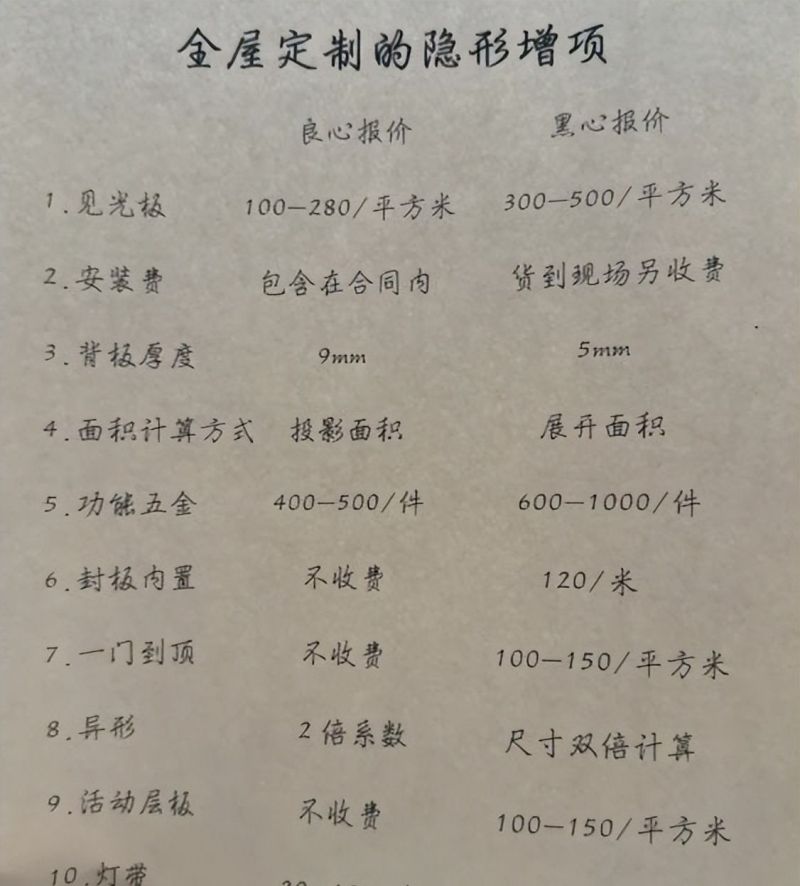 全屋定制的隐形增项
良心报价 黑心报价
1.见光板 100—280/平方米 300—500/平方米
2.安装费 包含在合同内 货到现场另收费
3.背板厚度 9mm 5mm
4.面积计算方式 投影面积 展开面积
5.功能五金 400—500/件 600—1000/件
6.封板内置 不收费 120/米
7.一门到顶 不收费 100—150/平方米
8.异形 2倍系数 尺寸双倍计算
9.活动层板 不收费 100—150/平方米
10.灯带